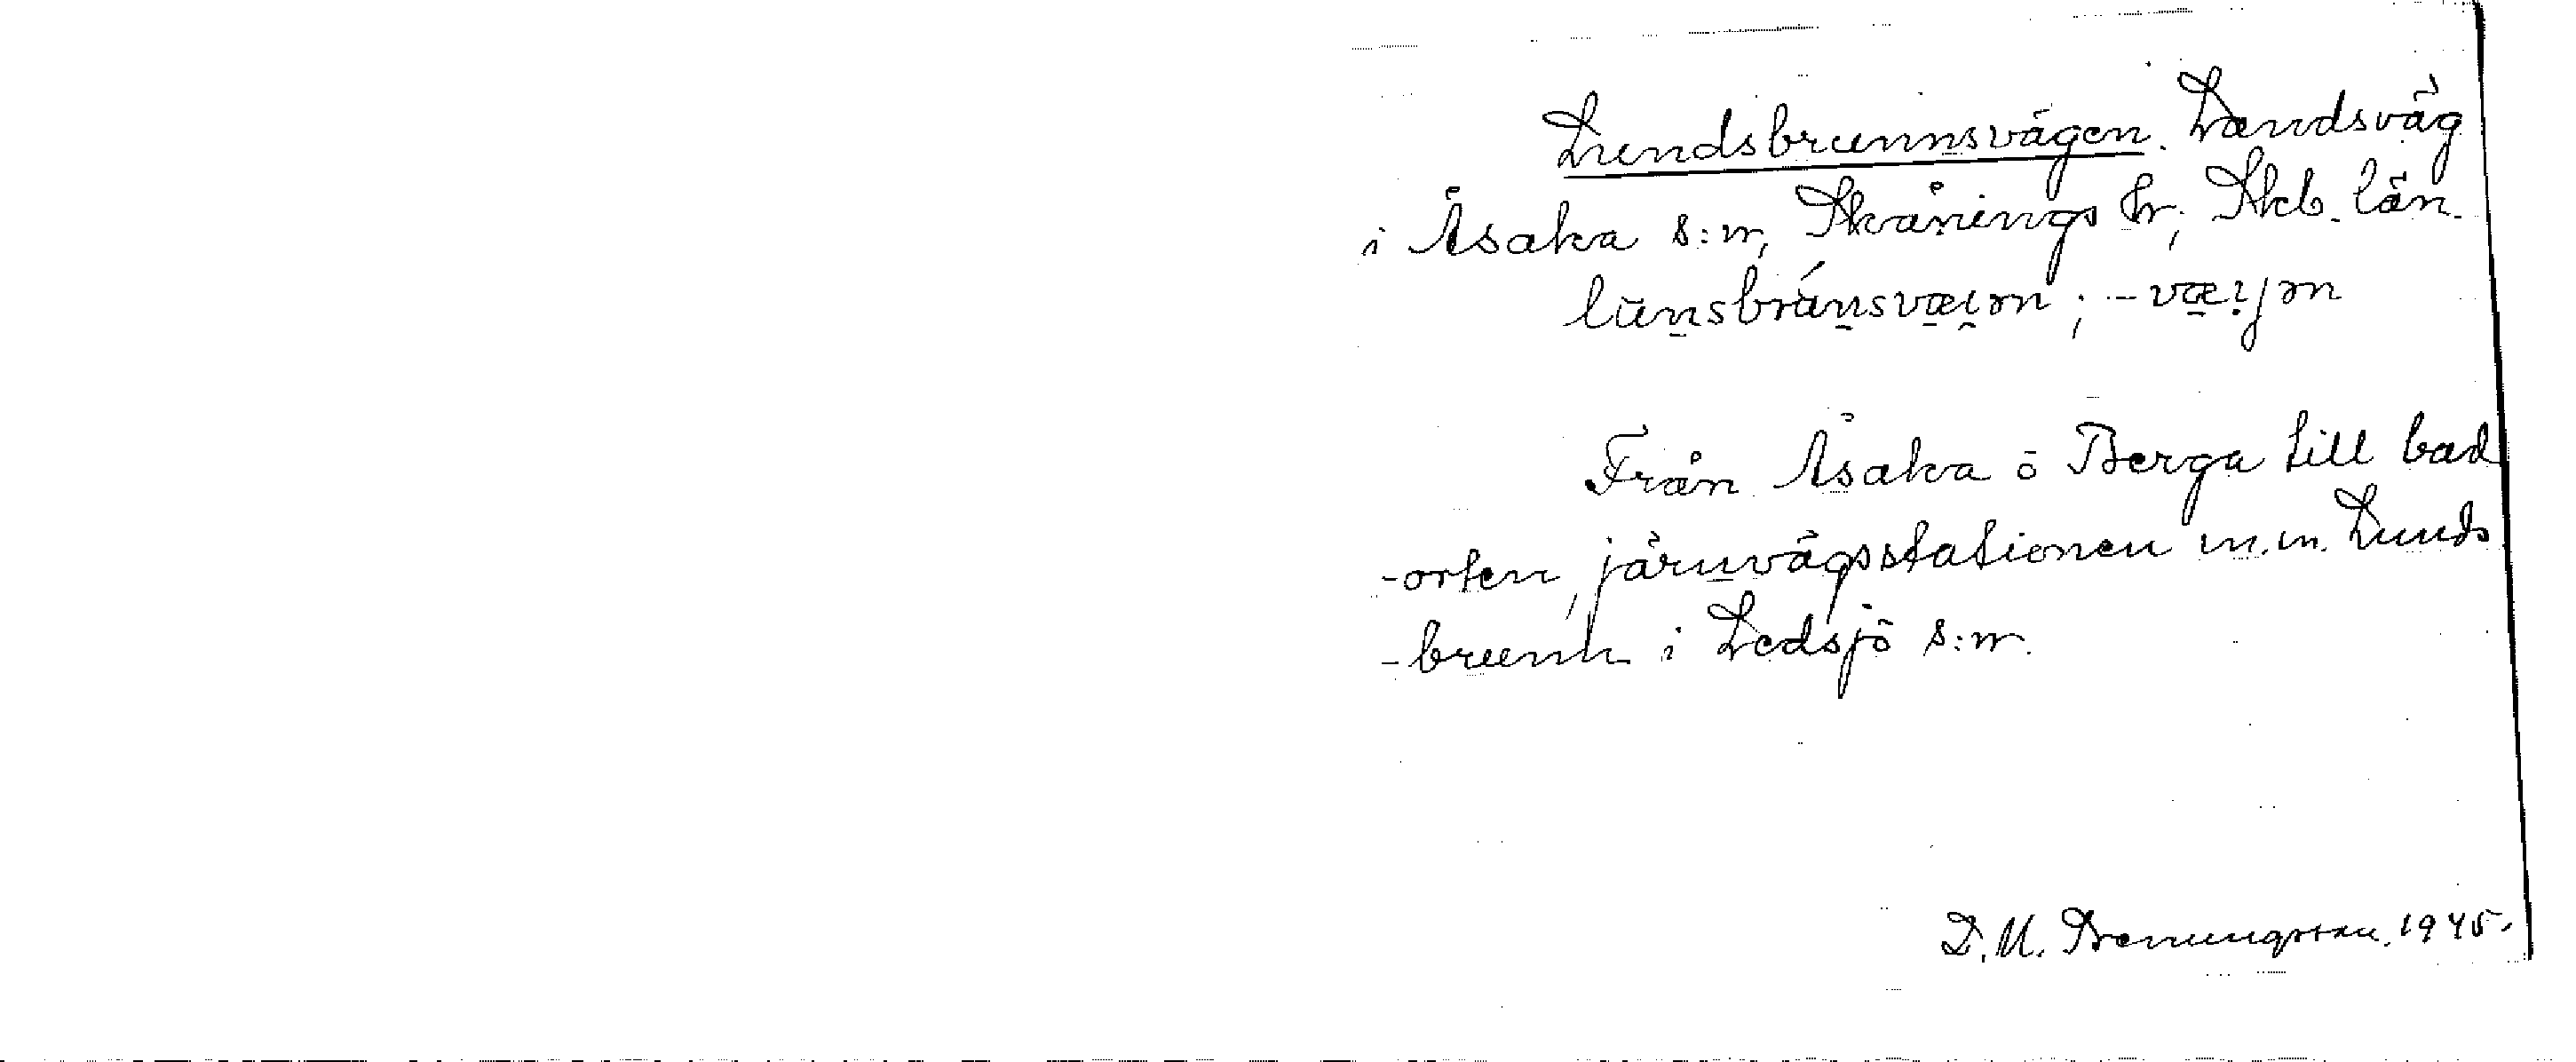 Lundsbrunnsvägen. Landsväg
i Åsaka s:n, Skånings hr, Skb. län.
lunsbrúnsvæiən ; -væijən
Från Åsaka ö Berga till bad
-orten, järnvägsstationen m.m. Lunds
-brunn i Ledsjö s:n.
D. M. 1945.